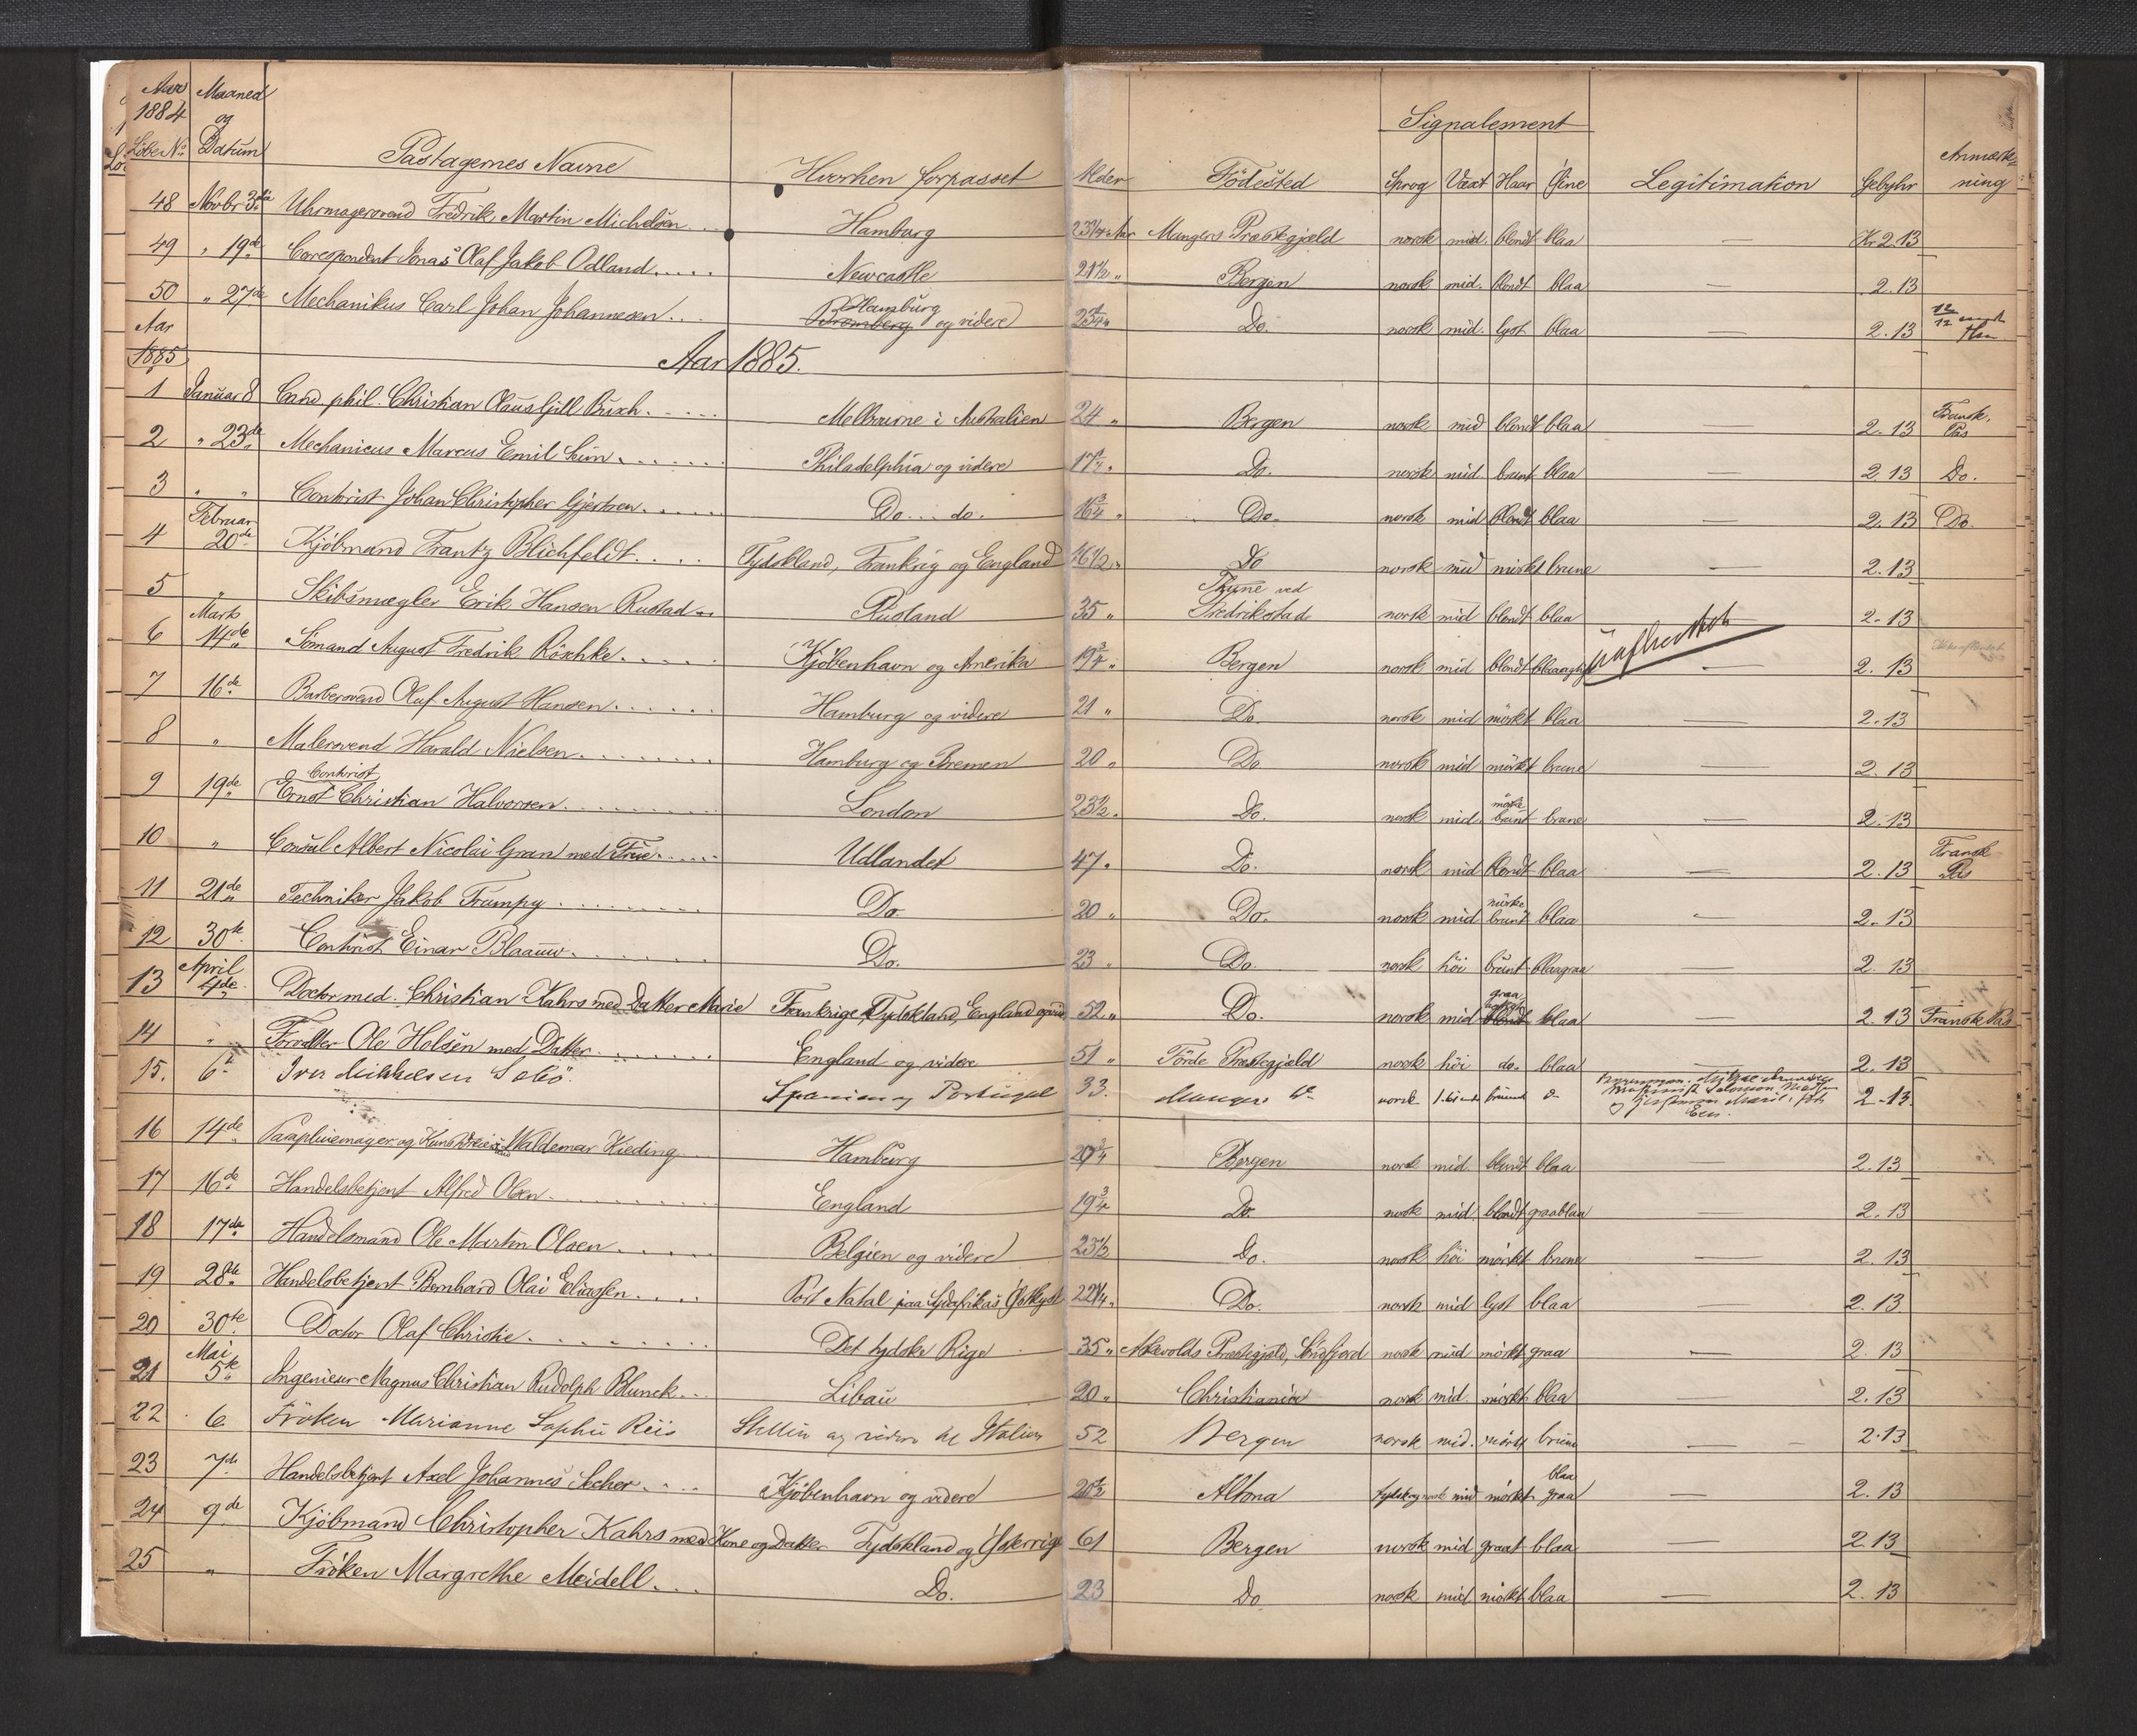 Aar 1884 Maaned og Datum
Löbe No Pastagernes Navne Hvorhen forpasset Alder Födested Signalement Sprog Væxt Haar Öine Legitimation Gebyhr Anmærkning
48 Novbr 3die Uhrmagersvend Fredrik Martin Michelsen Hamburg 23 1/4 Aar Mangers Præstegjæld norsk mid. blondt blaa — Kr 2.13
49 " 19de Corespondent Jonas Olaf Jakob Odland Newcastle 21 1/2 " Bergen norsk mid. blondt blaa — 2.13
50 " 27de Mechanikus Carl Johan Johannesen Hamburg og videre Do. norsk mid. lyst blaa 2.13
Aar 1885 Aar 1885.
1 Januar 8 Cand. phil. Christian Claus Gill Busch Melbourne i Australien 24 " Bergen norsk mid blondt blaa — 2.13 Fransk. Pas
2 " 23de Mechanicus Marcus Emil Philadelphia og videre Do. norsk mid. brunt blaa — 2.13 Do.
3 " " Contorist Johan Christopher Gjertsen Do. do. 16 3/4 " Do. norsk mid blondt blaa — 2.13 Do.
4 Februar 20de Kjöbmand Frantz Blichfeldt Tydskland, Frankrig og England Do norsk mid mörkt brune — 2.13
5 " Skibsmægler Erik Hansen Rustad Rusland 35 " Thune ved Fredrikstad norsk mid blondt blaa 2.13
6 Marts 14de Sömand August Fredrik Röschke Kjöbenhavn og Amerika 19 3/4 " Bergen norsk mid blondt — 2.13
7 16de Barbersvend Oluf August Hansen Hamburg og videre 21 " Do. norsk mid mörkt blaa — 2.13
8 " Malersvend Harald Nielsen Hamburg og Bremen 20 " Do norsk mid mörkt brune — 2.13
9 19de Contorist Ernst Christian Halvorsen London 23 1/2 " Do. norsk mid. mörke brunt brune — 2.13
10 " Consul Albert Nicolai Gran med Frue Udlandet 47 " Do. norsk mid blondt blaa — 2.13 Fransk Pas
11 21de Techniker Jakob Trumpy Do. 20 " Do. norsk mid mörke brunt blaa — 2.13
12 30te Contorist Einar Blaauw Do. 23 " Do. norsk höi brunt blaagraa — 2.13
13 April 4de Doctor med. Christian Kahrs med Datter Marie Frankrige, Tydskland, England 52 " Do. norsk mid graa blaa — 2.13 Fransk Pas
14 " Forvalter Ole Holsen med Datter England og videre 51 " Förde Præstegjeld norsk höi do. blaa — 2.13
15. 6te Iver Mikkelsen Sæbö. Spanien og Portugal 33. norsk 2.13
16 14de Paraplüemager og Waldemar Kieding Hamburg Bergen norsk mid blondt blaa — 2.13
17 16de Handelsbetjent Alfred Olsen England 19 3/4 Do. norsk mid blondt graablaa — 2.13
18 17de Handelsmand Ole Martin Olsen Belgien og videre Do. norsk höi mörkt brune — 2.13
19 28de Handelsbetjent Bernhard Olai Eliassen Port Natal paa Sydafrikas Östkyst 22 1/4 " Do. norsk mid lyst blaa — 2.13
20 30te Doctor Olaf Christie Det tydske Rige 35 " Askevolds Præstegjæld, Söndfjord norsk mid mörkt graa — 2.13
21 Mai 5te Ingenieur Magnus Christian Rudolph Blunck Libau 20 " Christiania norsk mid. mörkt blaa — 2.13
22 6 Fröken Marianne Sophie Reis Stettin og videre til Italien 52 Bergen norsk mid. mörkt brune — 2.13
23 7de Handelsbetjent Axel Johannes Secher Kjöbenhavn og videre 20 1/2 Altona tydsk og norsk mid mörkt blaa graa — 2.13
24 9de Kjöbmand Christopher Kahrs med Kone og Datter Tydskland og Österrige 61 Bergen norsk mid graat blaa — 2.13
25 " Fröken Margrethe Meidell Do. 23 Do norsk mid mörkt blaa — 2.13